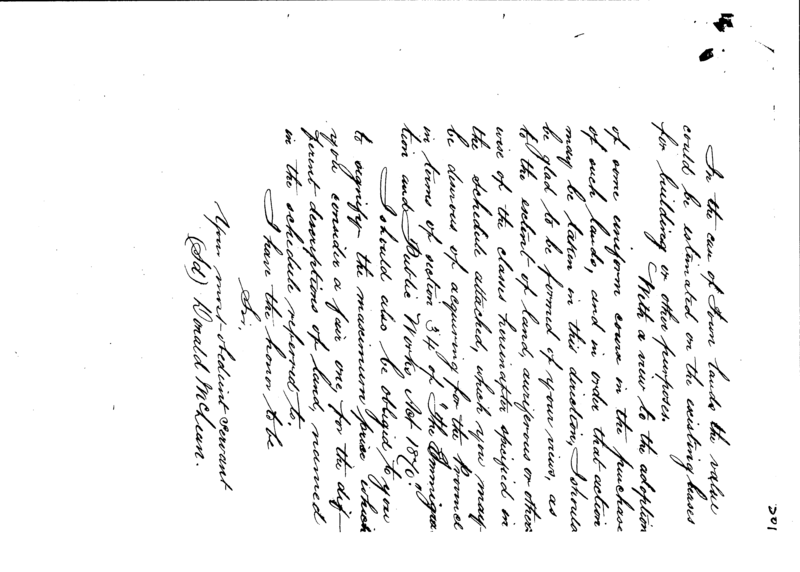 201
In the case of Town lands the value
could be estimated on the existing leases
for building or other purposes.
With a view to the adoption
of some uniform course in the purchase
of such lands, and in order that action
may be taken in this direction, I should
be glad to be formed of your views, as
to the extent of land, auriferous or other
wise of the classes hereinafter specified in
the schedule attached, which you may
be desirous of acquiring for the Province
in terms of section 34 of, "The Immigra
tion and Public Works Act 1870."
I should also be obliged to you
to signify the maximum price which
you consider a fair one, for the dif-
ferent descriptions of land, named
in the schedule referred to.
I have the honor to be
Sir,
Your most obedient servant
(Sd) Donald McLean.